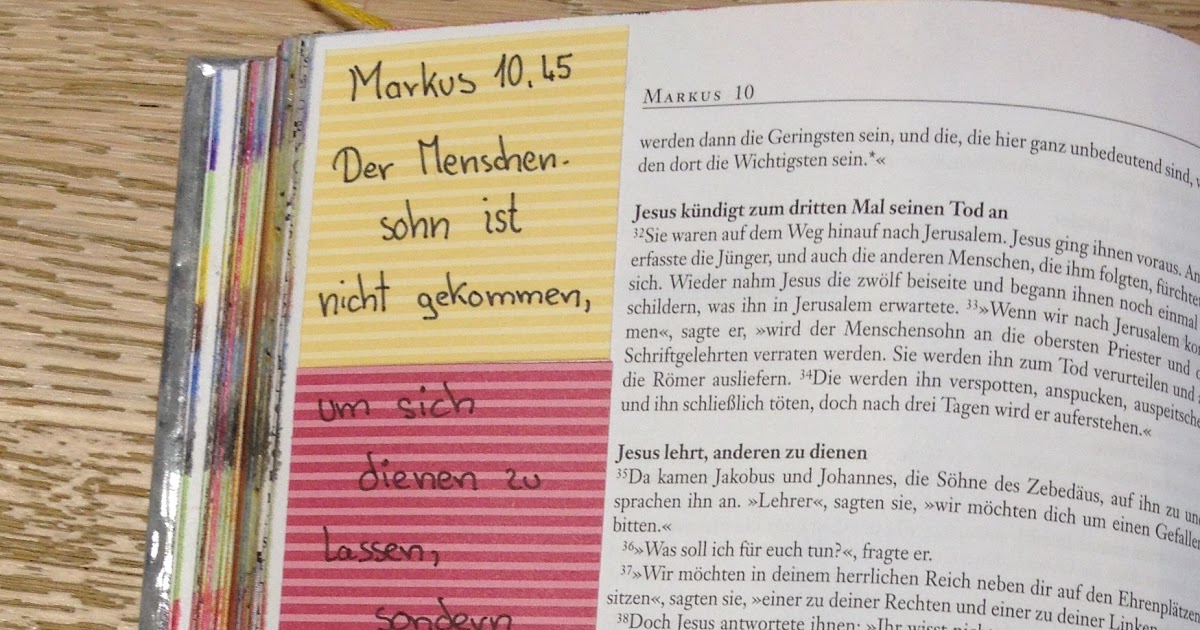 Markus 10,45
Der Menschen-
sohn ist
nicht gekommen,
um sich
dienen zu
lassen,
sondern
MARKUS 10
werden dann die Geringsten sein, und die, die hier ganz unbedeutend sind, w
den dort die Wichtigsten sein.*«
Jesus kündigt zum dritten Mal seinen Tod an
32Sie waren auf dem Weg hinauf nach Jerusalem. Jesus ging ihnen voraus. An
erfasste die Jünger, und auch die anderen Menschen, die ihm folgten, fürchte
sich. Wieder nahm Jesus die zwölf beiseite und begann ihnen noch einmal
schildern, was ihn in Jerusalem erwartete. 33»Wenn wir nach Jerusalem ko
men«, sagte er, »wird der Menschensohn an die obersten Priester und
Schriftgelehrten verraten werden. Sie werden ihn zum Tod verurteilen und
die Römer ausliefern. 34Die werden ihn verspotten, anspucken, auspeitsche
und ihn schließlich töten, doch nach drei Tagen wird er auferstehen.«
Jesus lehrt, anderen zu dienen
35Da kamen Jakobus und Johannes, die Söhne des Zebedäus, auf ihn zu un
sprachen ihn an. »Lehrer«, sagten sie, »wir möchten dich um einen Gefallen
bitten.«
36»Was soll ich für euch tun?«, fragte er.
37»Wir möchten in deinem herrlichen Reich neben dir auf den Ehrenplätzen
sitzen«, sagten sie, »einer zu deiner Rechten und einer zu deiner Linken
38Doch Jesus antwortete ihnen: »Ihr wisst